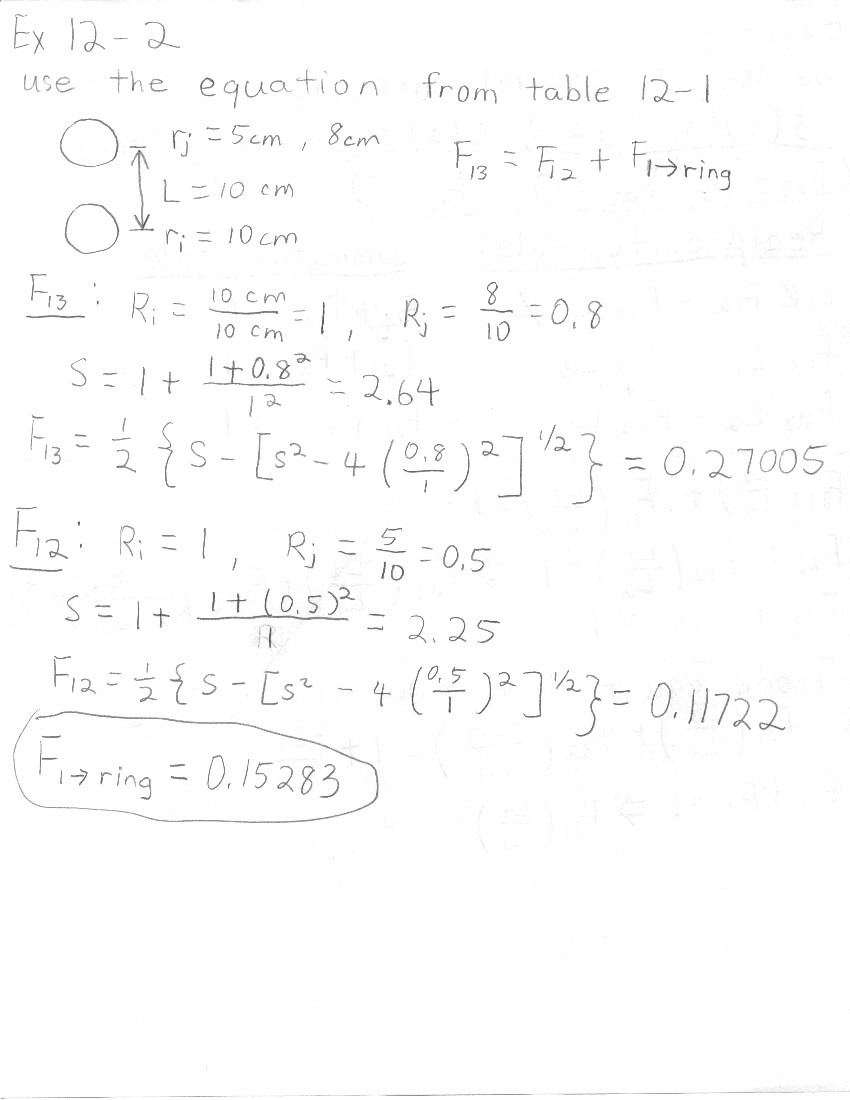 Ex 12-2
use the equation from table 12-1
rj = 5cm , 8cm
F13 = F12 + F1→ring
L = 10 cm
ri = 10cm
F13 : Ri = 10 cm / 10 cm = 1 , Rj = 8/10 = 0.8
S = 1 + (1+0.8²)/1² = 2.64
F13 = 1/2 {S - [S² - 4 (0.8/1)²]^1/2} = 0.27005
F12 : Ri = 1 , Rj = 5/10 = 0.5
S = 1 + (1+(0.5)²)/1 = 2.25
F12 = 1/2 {S - [S² - 4 (0.5/1)²]^1/2} = 0.11722
F1→ring = 0.15283